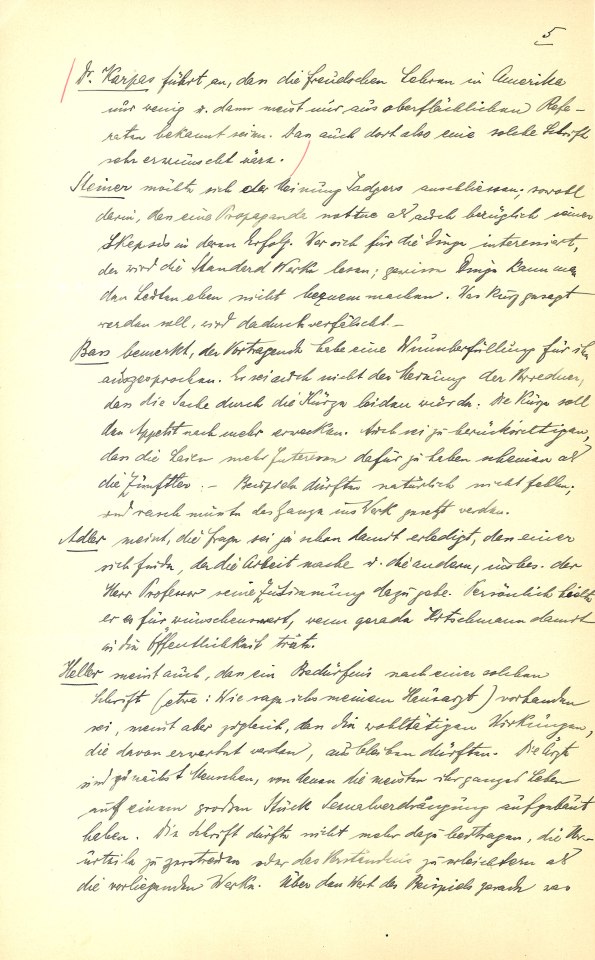 5
Dr. Karpas führt an, dass die Freudschen Lehren in Amerika
nur wenig u. dann meist nur aus oberflächlichen Refe-
raten bekannt seien. Dass auch dort also eine solche Schrift
sehr erwünscht wäre.
Steiner möchte sich der Meinung Sadgers anschliessen; sowohl
darin, dass eine Propaganda nottue als auch bezüglich seiner
Skepsis in deren Erfolg. Wer sich für die Dinge interessiert,
der wird die Standard Werke lesen; gewisse Dinge kann man
den Leuten eben nicht bequem machen. Was kurz gesagt
werden soll, wird dadurch verfälscht. –
Bass bemerkt, der Vortragende habe eine Wunscherfüllung für ihn
ausgesprochen. Er sei auch nicht der Meinung der Vorredner,
dass die Sache durch die Kürze leiden würde. Die Kürze soll
den Appetit nach mehr erwecken. Auch sei zu berücksichtigen,
dass die Laien mehr Interesse dafür zu haben scheinen als
die Zünftler. – Beispiele dürften natürlich nicht fehlen;
und rasch müsste das Ganze ins Werk gesetzt werden.
Adler meint, die Frage sei ja schon damit erledigt, dass einer
sich finde, der die Arbeit mache u. die andern, insbes. der
Herr Professor seine Zustimmung dazu gebe. Persönlich hielte
er es für wünschenswert, wenn gerade Hitschmann damit
in die Öffentlichkeit träte.
Heller meint auch, dass ein Bedürfnis nach einer solchen
Schrift (etwa: Wie sage ichs meinem Hausarzt) vorhanden
sei, meint aber zugleich, dass die wohltätigen Wirkungen,
die davon erwartet werden, ausbleiben dürften. Die Ärzte
sind zunächst Menschen, von denen die meisten ihr ganzes Leben
auf einem grossen Stück Sexualverdrängung aufgebaut
haben. Die Schrift dürfte nicht mehr dazu beitragen, die Vor-
urteile zu zerstreuen oder das Verständnis zu erleichtern als
die vorliegenden Werke. Über den Wert des Beispiels gerade